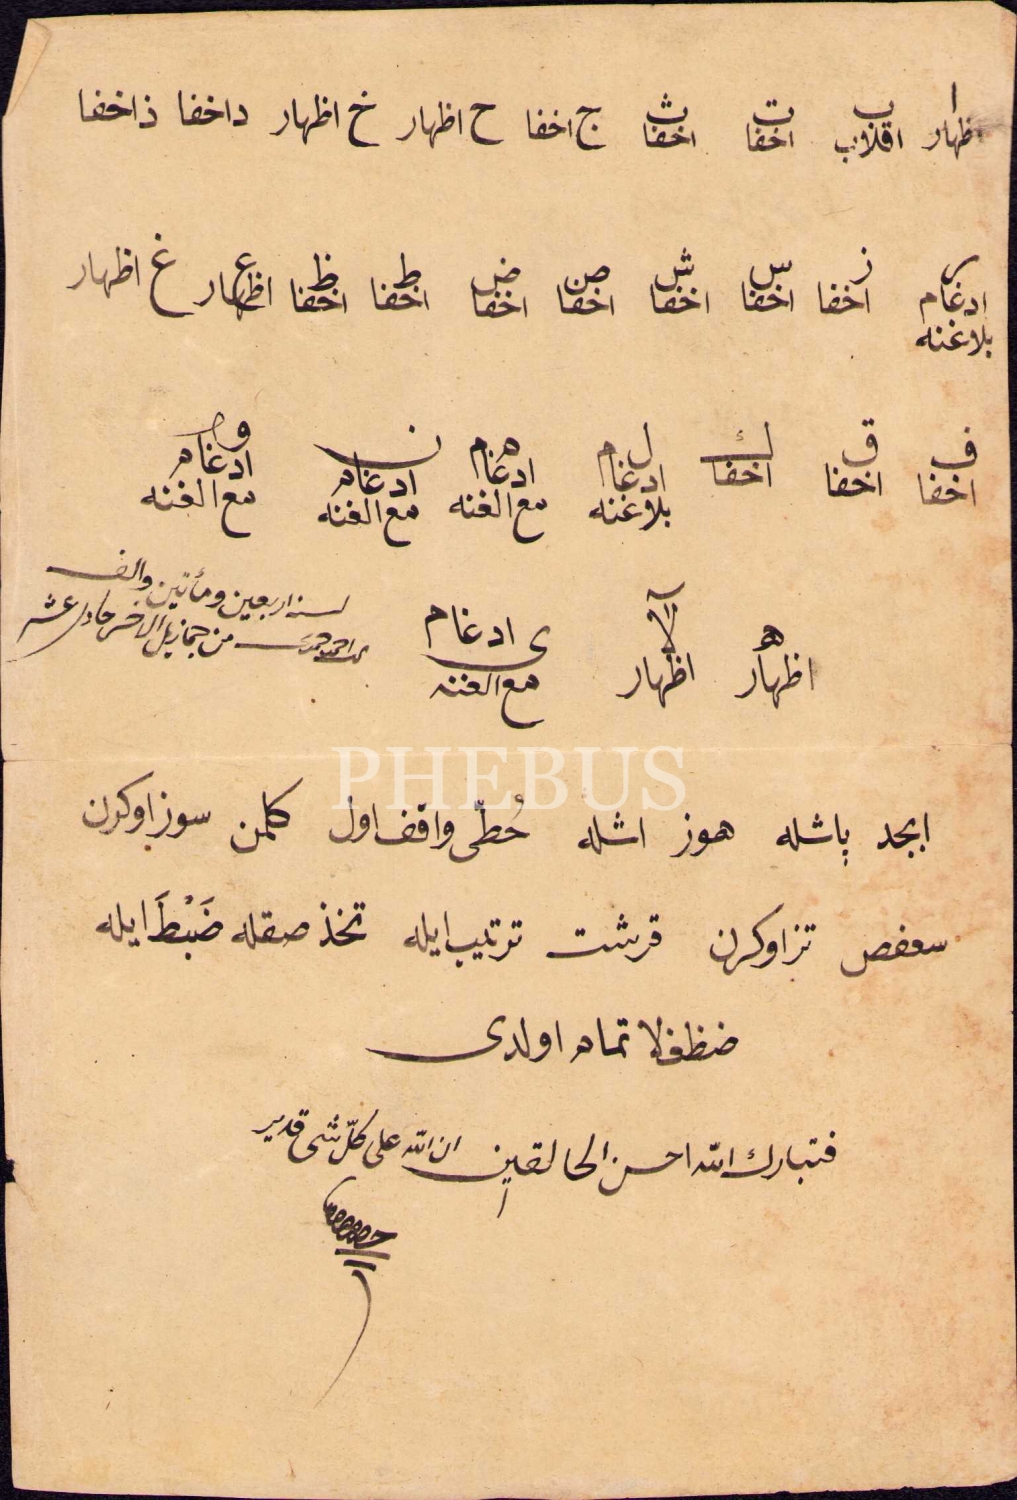 ا اظهار ب اقلاب ت اخفا ث اخفا ج اخفا ح اظهار خ اظهار د اخفا ذ اخفا
ر ادغام بلاغنه ز اخفا س اخفا ش اخفا ص اخفا ض اخفا ط اخفا ظ اخفا ع اظهار غ اظهار
ف اخفا ق اخفا ك اخفا ل ادغام بلاغنه م ادغام مع الغنه ن ادغام مع الغنه و ادغام مع الغنه
ه اظهار لا اظهار ى ادغام مع الغنه
سنه اربعين ومأتين والف
من
PHEBUS
ابجد باشله هوز اشله حُطّى واقف اول كلمن سوز اوكرن
سعفص تز اوكرن قرشت ترتيب ايله ثخذ صقله ضَبْطَ ايله
ضظغلا تمام اولدى
فتبارك الله احسن الخالقين ان الله على كلّ شى قدير